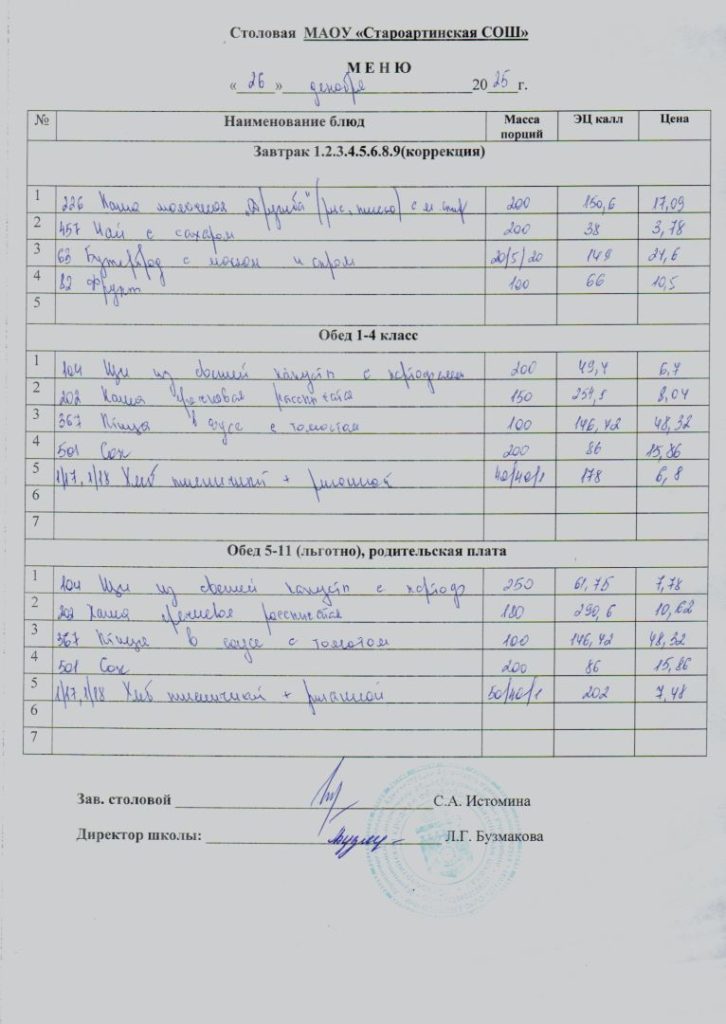 Столовая МАОУ «Староартинская СОШ»
М Е Н Ю
«26» декабря 2025 г.
№ Наименование блюд Масса порций ЭЦ калл Цена
Завтрак 1.2.3.4.5.6.8.9(коррекция)
1 226 Каша молочная "Дружба" (рис, пшено) с м 200 150,6 17,09
2 457 Чай с сахаром 200 38 3,78
3 63 Бутерброд с маслом и сыром 20/5/20 149 21,6
4 82 Фрукт 100 66 10,5
5
Обед 1-4 класс
1 104 Щи из свежей капусты с картофелем 200 49,4 6,7
2 202 Каша гречневая рассыпчатая 150 8,04
3 367 Птица в соусе с томатом 100 146,42 48,32
4 501 Сок 200 86 15,86
5 1/17, 1/18 Хлеб пшеничный + ржаной 40/40/1 178 6,8
6
7
Обед 5-11 (льготно), родительская плата
1 104 Щи из свежей капусты с картоф 250 61,75 7,78
2 202 Каша гречневая рассыпчатая 180 290,6 10,62
3 367 Птица в соусе с томатом 100 146,42 48,32
4 501 Сок 200 86 15,86
5 1/17, 1/18 Хлеб пшеничный + ржаной 50/40/1 202 7,48
6
7
Зав. столовой С.А. Истомина
Директор школы: Л.Г. Бузмакова